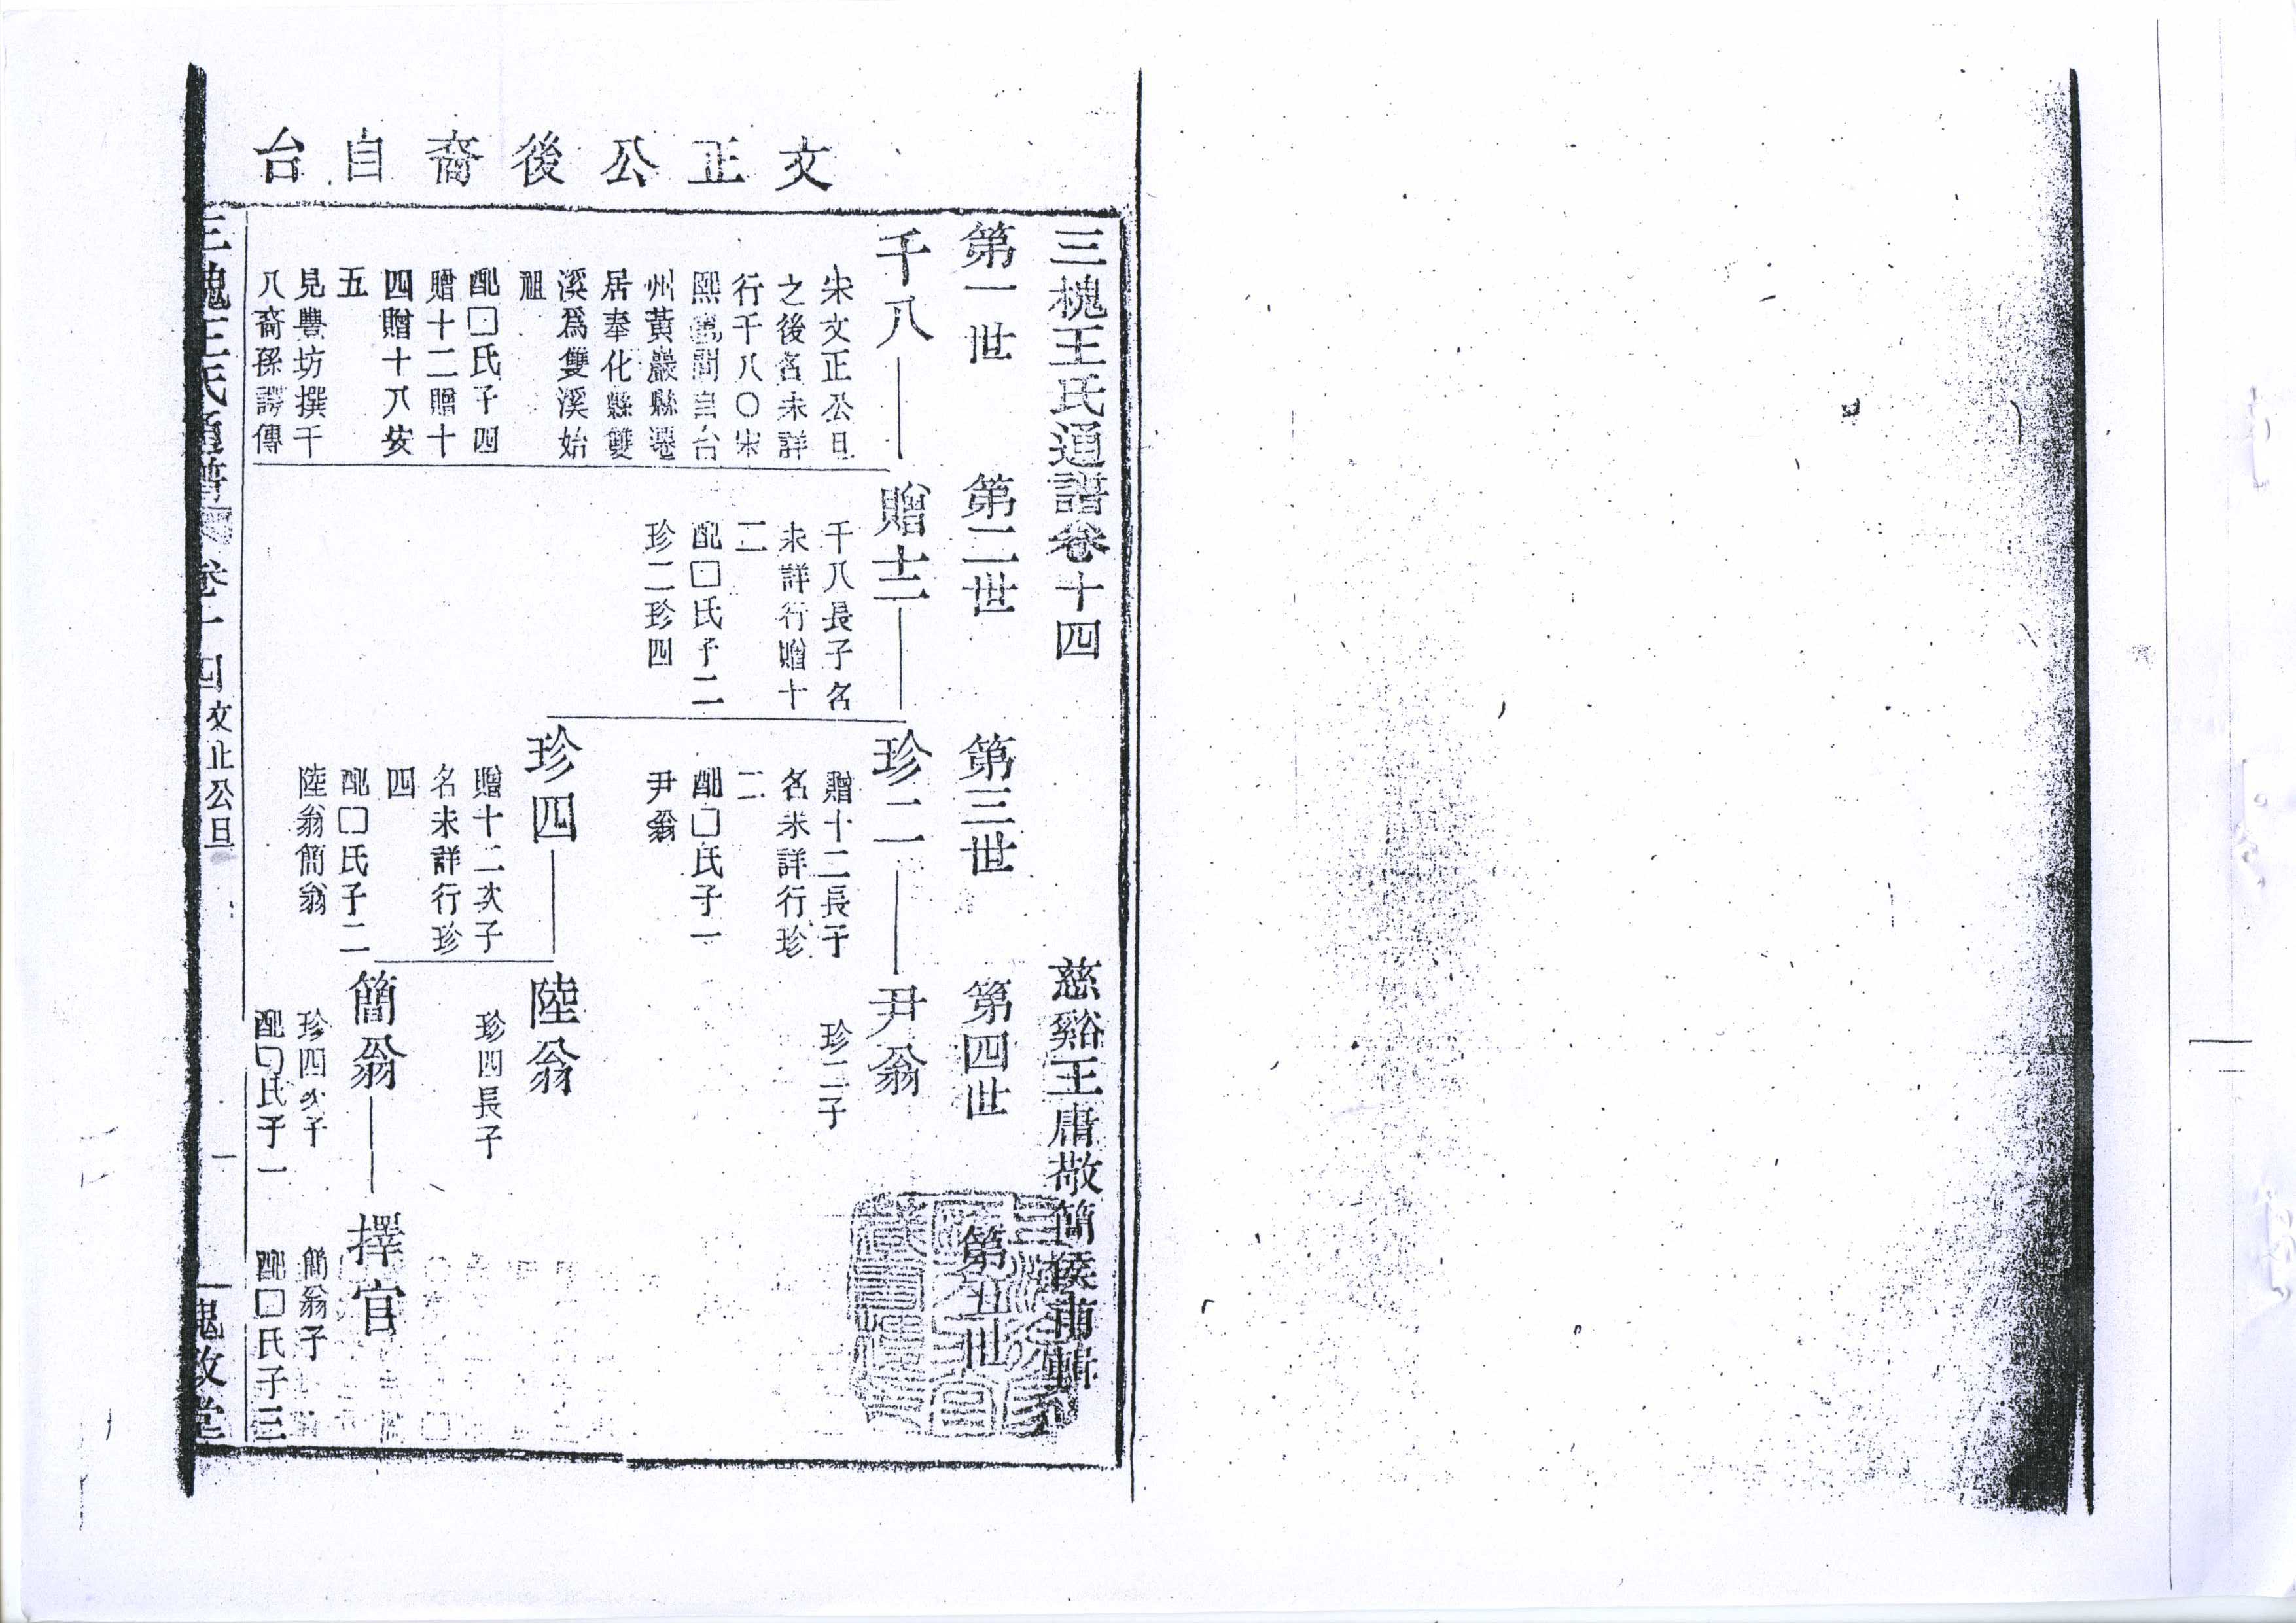 文正公後裔自台
三槐王氏通譜卷十四
慈谿王庸敬簡侯甫輯
第一世
第二世
第三世
第四世
第五世
千八
宋文正公旦
之後名未詳
行千八〇宋
熙寧間自台
州黃巖縣遷
居奉化縣雙
溪爲雙溪始
祖
配□氏子四
贈十二贈十
四贈十八安
五
見豐坊撰千
八裔孫諤傳
贈十二
千八長子名
未詳行贈十
二
配□氏子二
珍二珍四
珍二
贈十二長子
名未詳行珍
二
配□氏子一
尹翁
珍四
贈十二次子
名未詳行珍
四
配□氏子二
陸翁簡翁
尹翁
珍二子
陸翁
珍四長子
簡翁
珍四次子
配□氏子一
擇官
簡翁子
配□氏子三
三槐王氏通譜 卷十四 文正公旦 一